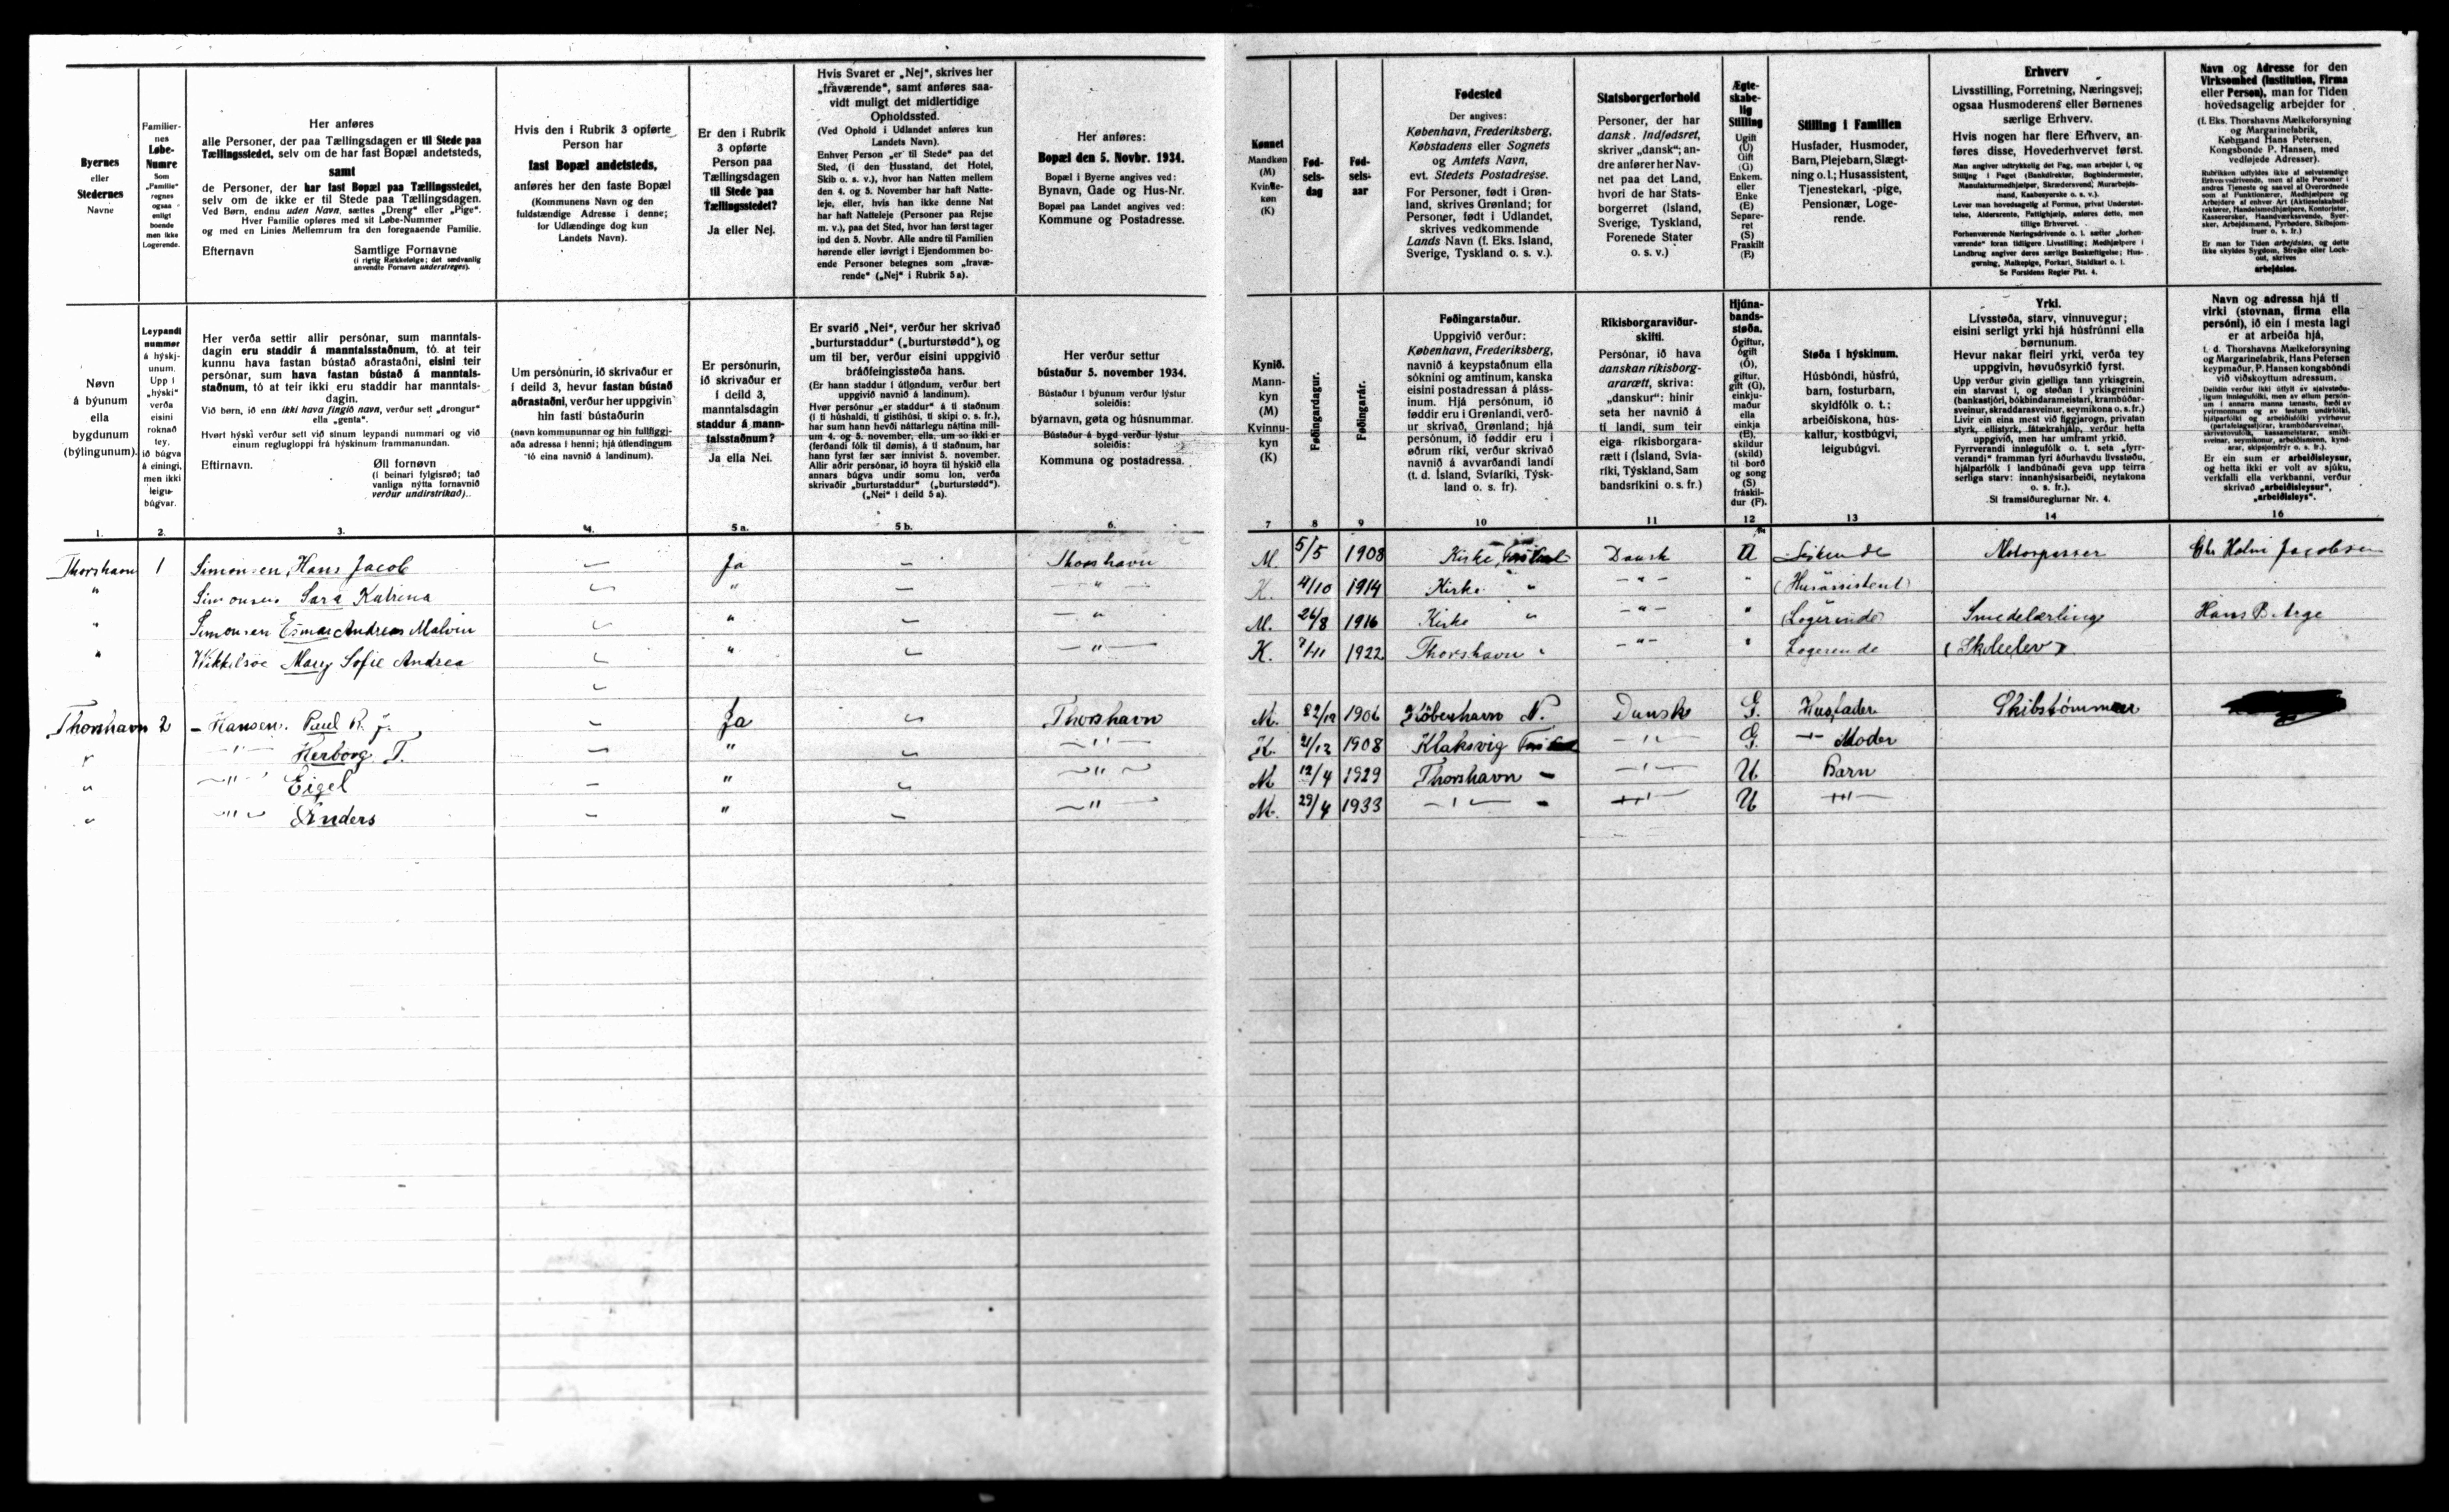 Byernes
eller
Stedernes
Navne
Familier-
nes
Løbe-
Numre
Som
„Familie“
regnes
ogsaa
enligt
boende
men ikke
Logerende.
Her anføres
alle Personer, der paa Tællingsdagen er til Stede paa
Tællingsstedet, selv om de har fast Bopæl andetsteds,
samt
de Personer, der har fast Bopæl paa Tællingsstedet,
selv om de ikke er til Stede paa Tællingsdagen.
Ved Børn, endnu uden Navn, sættes „Dreng“ eller „Pige“.
Hver Familie opføres med sit Løbe-Nummer
og med en Linies Mellemrum fra den foregaaende Familie.
Efternavn Samtlige Fornavne
(i rigtig Rækkefølge; det sædvanlig
anvendte Fornavn understreges).
Hvis den i Rubrik 3 opførte
Person har
fast Bopæl andetsteds,
anføres her den faste Bopæl
(Kommunens Navn og den
fuldstændige Adresse i denne;
for Udlændinge dog kun
Landets Navn).
Er den i Rubrik
3 opførte
Person paa
Tællingsdagen
til Stede paa
Tællingsstedet?
Ja eller Nej.
Hvis Svaret er „Nej“, skrives her
„fraværende“, samt anføres saa-
vidt muligt det midlertidige
Opholdssted.
(Ved Ophold i Udlandet anføres kun
Landets Navn).
Enhver Person „er til Stede“ paa det
Sted, (i den Husstand, det Hotel,
Skib o. s. v.), hvor han Natten mellem
den 4. og 5. November har haft Natte-
leje, eller, hvis han ikke denne Nat
har haft Natteleje (Personer paa Rejse
m. v.), paa det Sted, hvor han først tager
ind den 5. Novbr. Alle andre til Familien
hørende eller iøvrigt i Ejendommen bo-
ende Personer betegnes som „fravæ-
rende“ („Nej“ i Rubrik 5 a).
Her anføres:
Bopæl den 5. Novbr. 1934.
Bopæl i Byerne angives ved:
Bynavn, Gade og Hus-Nr.
Bopæl paa Landet angives ved:
Kommune og Postadresse.
Kønnet
Mandkøn
(M)
Kvinde-
køn
(K)
Fød-
sels-
dag
Fød-
sels-
aar
Fødested
Der angives:
København, Frederiksberg,
Købstadens eller Sognets
og Amtets Navn,
evt. Stedets Postadresse.
For Personer, født i Grøn-
land, skrives Grønland; for
Personer, født i Udlandet,
skrives vedkommende
Lands Navn (f. Eks. Island,
Sverige, Tyskland o. s. v.).
Statsborgerforhold
Personer, der har
dansk Indfødsret,
skriver „dansk“; an-
dre anfører her Nav-
net paa det Land,
hvori de har Stats-
borgerret (Island,
Sverige, Tyskland,
Forenede Stater
o. s. v.)
Ægte-
skabe-
lig
Stilling
Ugift
(U)
Gift
(G)
Enkem.
eller
Enke
(E)
Separe-
ret
(S)
Fraskilt
(F.)
Stilling i Familien
Husfader, Husmoder,
Barn, Plejebarn, Slægt-
ning o. l.; Husassistent,
Tjenestekarl, -pige,
Pensionær, Loge-
rende.
Erhverv
Livsstilling, Forretning, Næringsvej;
ogsaa Husmoderens eller Børnenes
særlige Erhverv.
Hvis nogen har flere Erhverv, an-
føres disse, Hovederhvervet først.
Man angiver udtrykkelig det Fag, man arbejder i, og
Stilling i Faget (Bankdirektør, Bogbindermester,
Manufakturmedhjælper, Skrædersvend, Murarbejds-
mand, Kaabesyerske o. s. v.).
Lever man hovedsagelig af Formue, privat Understøt-
telse, Aldersrente, Fattighjælp, anføres dette, men
tillige Erhvervet.
Forhenværende Næringsdrivende o. l. sætter „forhen-
værende“ foran tidligere Livsstilling; Medhjælpere i
Landbrug angiver deres særlige Beskæftigelse; Hus-
gerning, Malkepige, Forkarl, Staldkarl o. l.
Se Forsidens Regler Pkt. 4.
Navn og Adresse for den
Virksomhed (Institution, Firma
eller Person), man for Tiden
hovedsagelig arbejder for
(f. Eks. Thorshavns Mælkeforsyning
og Margarinefabrik,
Købmand Hans Petersen,
Kongsbonde P. Hansen, med
vedføjede Adresser).
Er man for Tiden arbejdsløs, og dette
ikke skyldes Sygdom, Strejke eller Lock-
out, skrives
arbejdsløs.
Nøvn
á býunum
ella
bygdunum
(býlingunum).
Leypandi
nummer
á hýskj-
unum.
Upp í
„hýski“
verða
eisini
roknað
tey,
ið búgva
á einingi,
men ikki
leigu-
búgvar.
Her verða settir allir persónar, sum manntals-
dagin eru staddir á manntalsstaðnum, tó at teir
kunnu hava fastan bústað aðrastaðni, eisini teir
persónar, sum hava fastan bústað á manntals-
staðnum, tó at teir ikki eru staddir har manntals-
dagin.
Við børn, ið enn ikki hava fingið navn, verður sett „drongur“
ella „genta“.
Hvørt hýski verður sett við sínum leypandi nummari og við
einum reglugloppi frá hýskinum frammanundan.
Eftirnavn. Øll fornøvn
(í beinari fylgisrøð; tað
vanliga nýtta fornavnið
verður undirstrikað).
Um persónurin, ið skrivaður er
í deild 3, hevur fastan bústað
aðrastaðni, verður her uppgivin
hin fasti bústaðurin
(navn kommununnar og hin fullfíggj-
aða adressa í henni; hjá útlendingum
tó eina navnið á landinum).
Er persónurin,
ið skrivaður er
í deild 3,
manntalsdagin
staddur á mann-
talsstaðnum?
Ja ella Nei.
Er svarið „Nei“, verður her skrivað
„burturstaddur“ („burturstødd“), og
um til ber, verður eisini uppgivið
bráðfeingisstøða hans.
(Er hann staddur í útlondum, verður bert
uppgivið navnið á landinum).
Hvør persónur „er staddur“ á tí staðnum
(í tí húshaldi, tí gistihúsi, tí skipi o. s. fr.),
har sum hann hevði náttarlegu náttina mill-
um 4. og 5. november, ella, um so ikki er
(ferðandi fólk til dømis), á tí staðnum, har
hann fyrst fær sær innivist 5. november.
Allir aðrir persónar, ið hoyra til hýskið ella
annars búgva undir somu lon, verða
skrivaðir „burturstaddur“ („burturstødd“).
(„Nei“ í deild 5 a).
Her verður settur
bústaður 5. november 1934.
Bústaður í býunum verður lýstur
soleiðis:
býarnavn, gøta og húsnummar.
Bústaður á bygd verður lýstur
soleiðis:
Kommuna og postadressa.
Kynið.
Mann-
kyn
(M)
Kvinnu-
kyn
(K)
Føðingardagur.
Føðingarár.
Føðingarstaður.
Uppgivið verður:
København, Frederiksberg,
navnið á keypstaðnum ella
sóknini og amtinum, kanska
eisini postadressan á pláss-
inum. Hjá persónum, ið
føddir eru í Grønlandi, verð-
ur skrivað, Grønland; hjá
persónum, ið føddir eru í
øðrum ríki, verður skrivað
navnið á avvarðandi landi
(t. d. Ísland, Svíaríki, Týsk-
land o. s. fr).
Ríkisborgaraviður-
skifti.
Persónar, ið hava
danskan ríkisborg-
ararætt, skriva:
„danskur“: hinir
seta her navnið á
tí landi, sum teir
eiga ríkisborgara-
rætt í (Ísland, Svía-
ríki, Týskland, Sam
bandsríkini o. s. fr.)
Hjúna-
bands-
støða.
Ógiftur,
ógift
(Ó),
giftur,
gift (G),
einkju-
maður
ella
einkja
(E),
skildur
(skild)
til borð
og song
(S)
fráskil-
dur (F).
Støða í hýskinum.
Húsbóndi, húsfrú,
barn, fosturbarn,
skyldfólk o. t.;
arbeiðiskona, hús-
kallur, kostbúgvi,
leigubúgvi.
Yrki.
Lívsstøða, starv, vinnuvegur;
eisini serligt yrki hjá húsfrúnni ella
børnunum.
Hevur nakar fleiri yrki, verða tey
uppgivin, høvuðsyrkið fyrst.
Upp verður givin gjølliga tann yrkisgrein,
ein starvast í, og støðan í yrkisgreinini
(bankastjóri, bókbindarameistari, krambúðar-
sveinur, skraddarasveinur, seymikona o. s. fr.)
Livir ein eina mest við figgjarogn, privatan
styrk, ellistyrk, fátækrahjálp, verður hetta
uppgivið, men har umframt yrkið.
Fyrrverandi innløgufólk o. t. seta „fyrr-
verandi“ framman fyri áðurhavdu lívsstøðu,
hjálparfólk í landbúnaði geva upp teirra
serliga starv: innanhýsisarbeiði, neytakona
o. s. fr.).
Sí framsíðureglurnar Nr. 4.
Navn og adressa hjá tí
virki (stovnan, firma ella
persóni), ið ein í mesta lagi
er at arbeiða hjá,
t. d. Thorshavns Mælkeforsyning
og Margarinefabrik, Hans Petersen
keypmaður, P. Hansen kongsbóndi
við viðskoyttum adressum.
Er ein sum er arbeiðisleysur,
og hetta ikki er volt av sjúku,
verkfalli ella verkbanni, verður
skrivað „arbeiðisleysur“,
„arbeiðisleys“.
1. 2. 3. 4. 5 a. 5 b. 6. 7 8 9 10 11 12 13 14 16
Thorshavn 1 Simonsen, Hans Jacob – Ja – Thorshavn M. 5/5 1908 Kirke Dansk U Motorpasser Chr Holm Jacobsen
" Simonsen Sara Katrina – " – – " – K. 4/10 1914 Kirke " – " – " (Husassistent)
" Simonsen Esmar Andreas Malvin – " – – " – M. 26/8 1916 Kirke " – " – " (Logerende) Smedelærling Hans B. Arge
" Mary Sofie Andrea – " – – " – K. 1922 Thorshavn " – " – " Logerende (Skoleelev)
Thorshavn 2 – Hansen. Paul R. J. – Ja – Thorshavn M. 22/12 1906 København N. Dansk G. Husfader Skibstømmrer
" – " – Herborg T. – " – – " – K. 1908 Klaksvig – " – G – " – Moder
" – " – Eigel – " – – " – M 12/4 1929 Thorshavn – – " – U Barn
" – " – Anders – " – – " – M. 29/4 1933 – " – – – " – U – " –